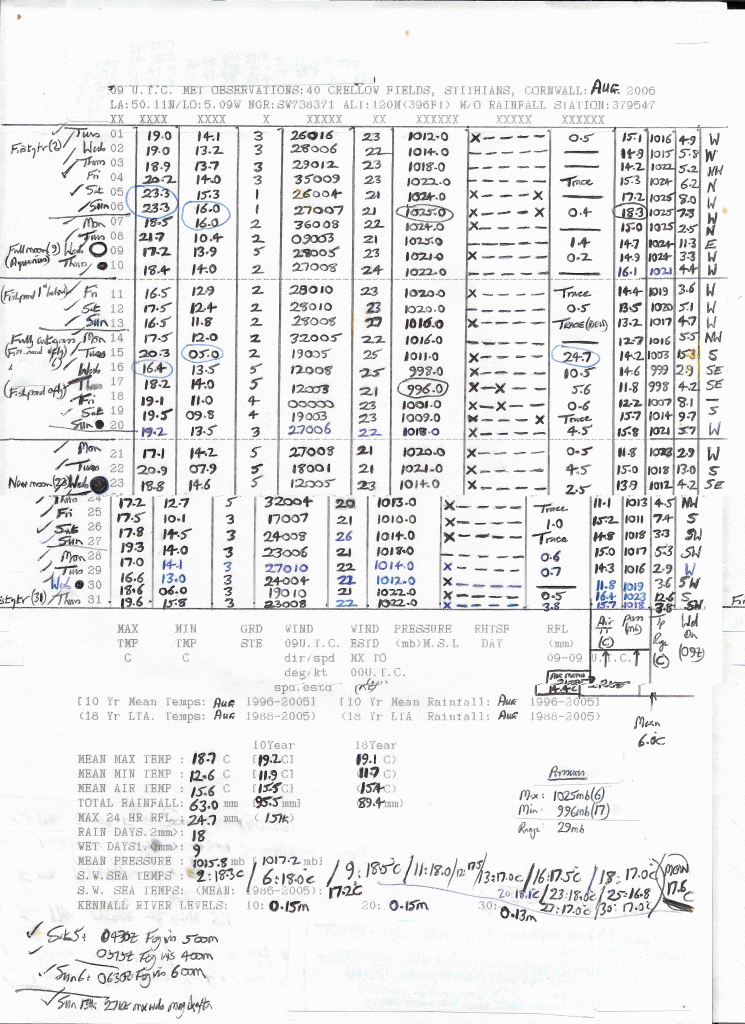 09 U.T.C. MET OBSERVATIONS:40 CRELLOW FIELDS, STITHIANS, CORNWALL: AUG 2006
LA:50.11N/LO:5.09W NGR:SW738371 ALT:120M(396Ft) M/O RAINFALL STATION:379547
XX XXXX XXXX X XXXXX XX XXXXXX XXXXX XXXXXX
Fist qtr (2) Tues 01 19.0 14.1 3 26016 23 1012.0 X---- 0.5 15.1 1016 4.9 W
Wed 02 19.0 13.2 3 28006 22 1014.0 X---- — 14.9 1015 5.8 W
Thurs 03 18.9 13.7 3 29012 23 1018.0 X---- — 14.2 1022 5.2 NW
Fri 04 20.2 14.0 3 35009 23 1022.0 X---- Trace 15.3 1024 6.2 N
Sat 05 23.3 15.3 1 26004 21 1024.0 X---X — 17.2 1025 8.0 W
Sun 06 23.3 16.0 1 27007 21 1025.0 X---X 0.4 18.3 1025 7.3 W
Mon 07 18.5 16.0 2 36008 22 1024.0 X---- — 15.0 1025 2.5 N
Tues 08 21.7 10.4 2 09003 21 1025.0 X---- 1.4 14.7 1024 11.3 E
Full moon (9) Wed 09 17.2 13.9 5 28005 23 1021.0 X---- 0.2 14.9 1024 3.3 W
(Aquarius) Thurs 10 18.4 14.0 2 27008 24 1022.0 X---- — 16.1 1021 4.4 W
Fri 11 16.5 12.9 2 28010 23 1020.0 X---- Trace 14.4 1019 3.6 W
Sat 12 17.5 12.4 2 28010 23 1020.0 X---- 0.5 13.5 1020 5.1 W
Sun 13 16.5 11.8 2 28008 27 1016.0 X---- Trace(Dew) 13.2 1017 4.7 W
Mon 14 17.5 12.0 2 32005 22 1016.0 X---- — 12.7 1016 5.5 NW
Tues 15 20.3 05.0 2 19005 25 1011.0 X---- 24.7 14.2 1003 15.3 S
Wed 16 16.4 13.5 5 12008 25 998.0 X---- 10.5 14.6 999 2.9 SE
Thurs 17 18.2 14.0 5 12003 21 996.0 X-X-- 5.6 11.8 998 4.2 SE
Fri 18 19.1 11.0 4 00000 23 1001.0 X-X-- 0.6 12.2 1007 8.1 —
Sat 19 19.5 09.8 4 19003 23 1009.0 X---X Trace 15.7 1014 9.7 S
Sun 20 19.2 13.5 3 27006 22 1018.0 X---- 4.5 15.8 1021 5.7 W
Mon 21 17.1 14.2 5 27008 21 1020.0 X---- 0.5 11.8 1023 2.9 W
Tues 22 20.9 07.9 5 18001 21 1021.0 X---- 4.5 15.0 1018 13.0 S
New moon (23) Wed 23 18.8 14.6 5 12005 23 1014.0 X---- 2.5 13.9 1012 4.2 SE
Thurs 24 17.2 12.7 5 32004 20 1013.0 X---- Trace 11.1 1013 4.5 NW
Fri 25 17.5 10.1 3 17007 21 1010.0 X---- 1.0 15.2 1011 7.4 S
Sat 26 17.8 14.5 3 24008 26 1014.0 X---- — 14.8 1018 3.3 SW
Sun 27 19.3 14.0 3 23006 21 1018.0 X---- 0.6 15.0 1017 5.3 SW
Mon 28
Tues 29 17.0 14.1 3 27010 22 1014.0 X---- 0.7 14.3 1016 2.9 W
Wed 30 16.6 13.0 3 24004 22 1012.0 X---- — 11.8 1019 3.6 SW
18.6 06.0 3 19010 21 1022.0 X---- 0.5 16.4 1023 12.6 S
qtr (31) Thurs 31 19.6 15.8 3 23008 22 1022.0 X---- 3.8 15.7 1018 3.8 SW
MAX MIN GRD WIND WIND PRESSURE RHTSF RFL
TMP TMP STE 09U.T.C. ESTD (mb)M.S.L DAY (mm)
C C dir/spd MX TO 09-09 U.T.C.
deg/kt 00U.T.C.
spd.estd
Air (C) Press (mb) Rge (C) Wd Dn (09z)
[10 Yr Mean Temps: AUG 1996-2005] [10 Yr Mean Rainfall: AUG 1996-2005]
(18 Yr LTA. Temps: AUG 1988-2005) (18 Yr LTA Rainfall: AUG 1988-2005)
Mean 6.0c
10Year 18Year
MEAN MAX TEMP : 18.7 C [19.2 C] 19.1 C)
MEAN MIN TEMP : 12.6 C [11.9 C] 11.7 C)
MEAN AIR TEMP : 15.6 C [15.5 C] 15.4 C)
TOTAL RAINFALL: 63.0 mm 95.5 mm] 89.4 mm)
MAX 24 HR RFL : 24.7 mm (15th)
RAIN DAYS.2mm>: 18
WET DAYS1.0mm>: 9
MEAN PRESSURE : 1015.8 mb / 1017.2 mb]
Pressures
Max: 1025mb(6)
Min: 996mb(17)
Range: 29mb
S.W.SEA TEMPS : 2:18.3c / 6:18.0c / 9:18.5c / 11:18.0 / 12:17.5 / 13:17.0c / 16:17.5c / 18:17.0c / MEAN 17.6 C
S.W. SEA TEMPS: (MEAN: 1986-2005): 17.2c 20:18.1c / 23:18.0c / 25:16.8
27:17.0c / 30:17.0c
KENNALL RIVER LEVELS: 10: 0.15m 20: 0.15m 30: 0.13m
Sat 5: 0430Z Fog vis 500m
0515Z Fog vis 400m
Sun 6: 0630Z Fog vis 600m
Sun 13th: 27kt max wds